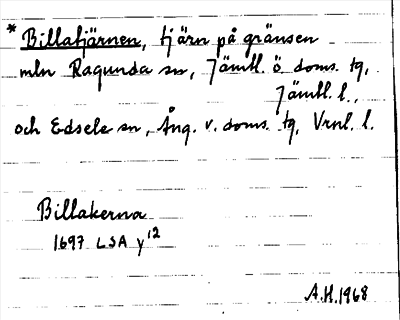 * Billatjärnen, tjärn på gränsen
mln Ragunda sn, Jämtl. ö. doms. tg,
Jämtl. l.,
och Edsele sn, Ång. v. doms. tg, Vrnl. l.
Billakerna
1697 LSA y¹²
A.H. 1968